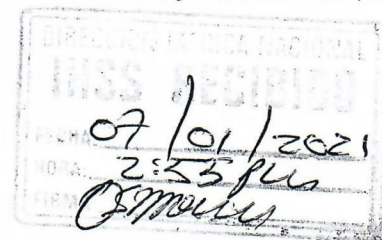 DIRECCION MEDICA NACIONAL
INSS RECIBIDO
FECHA 07/01/2021
HORA 2:55 pm
FIRMA